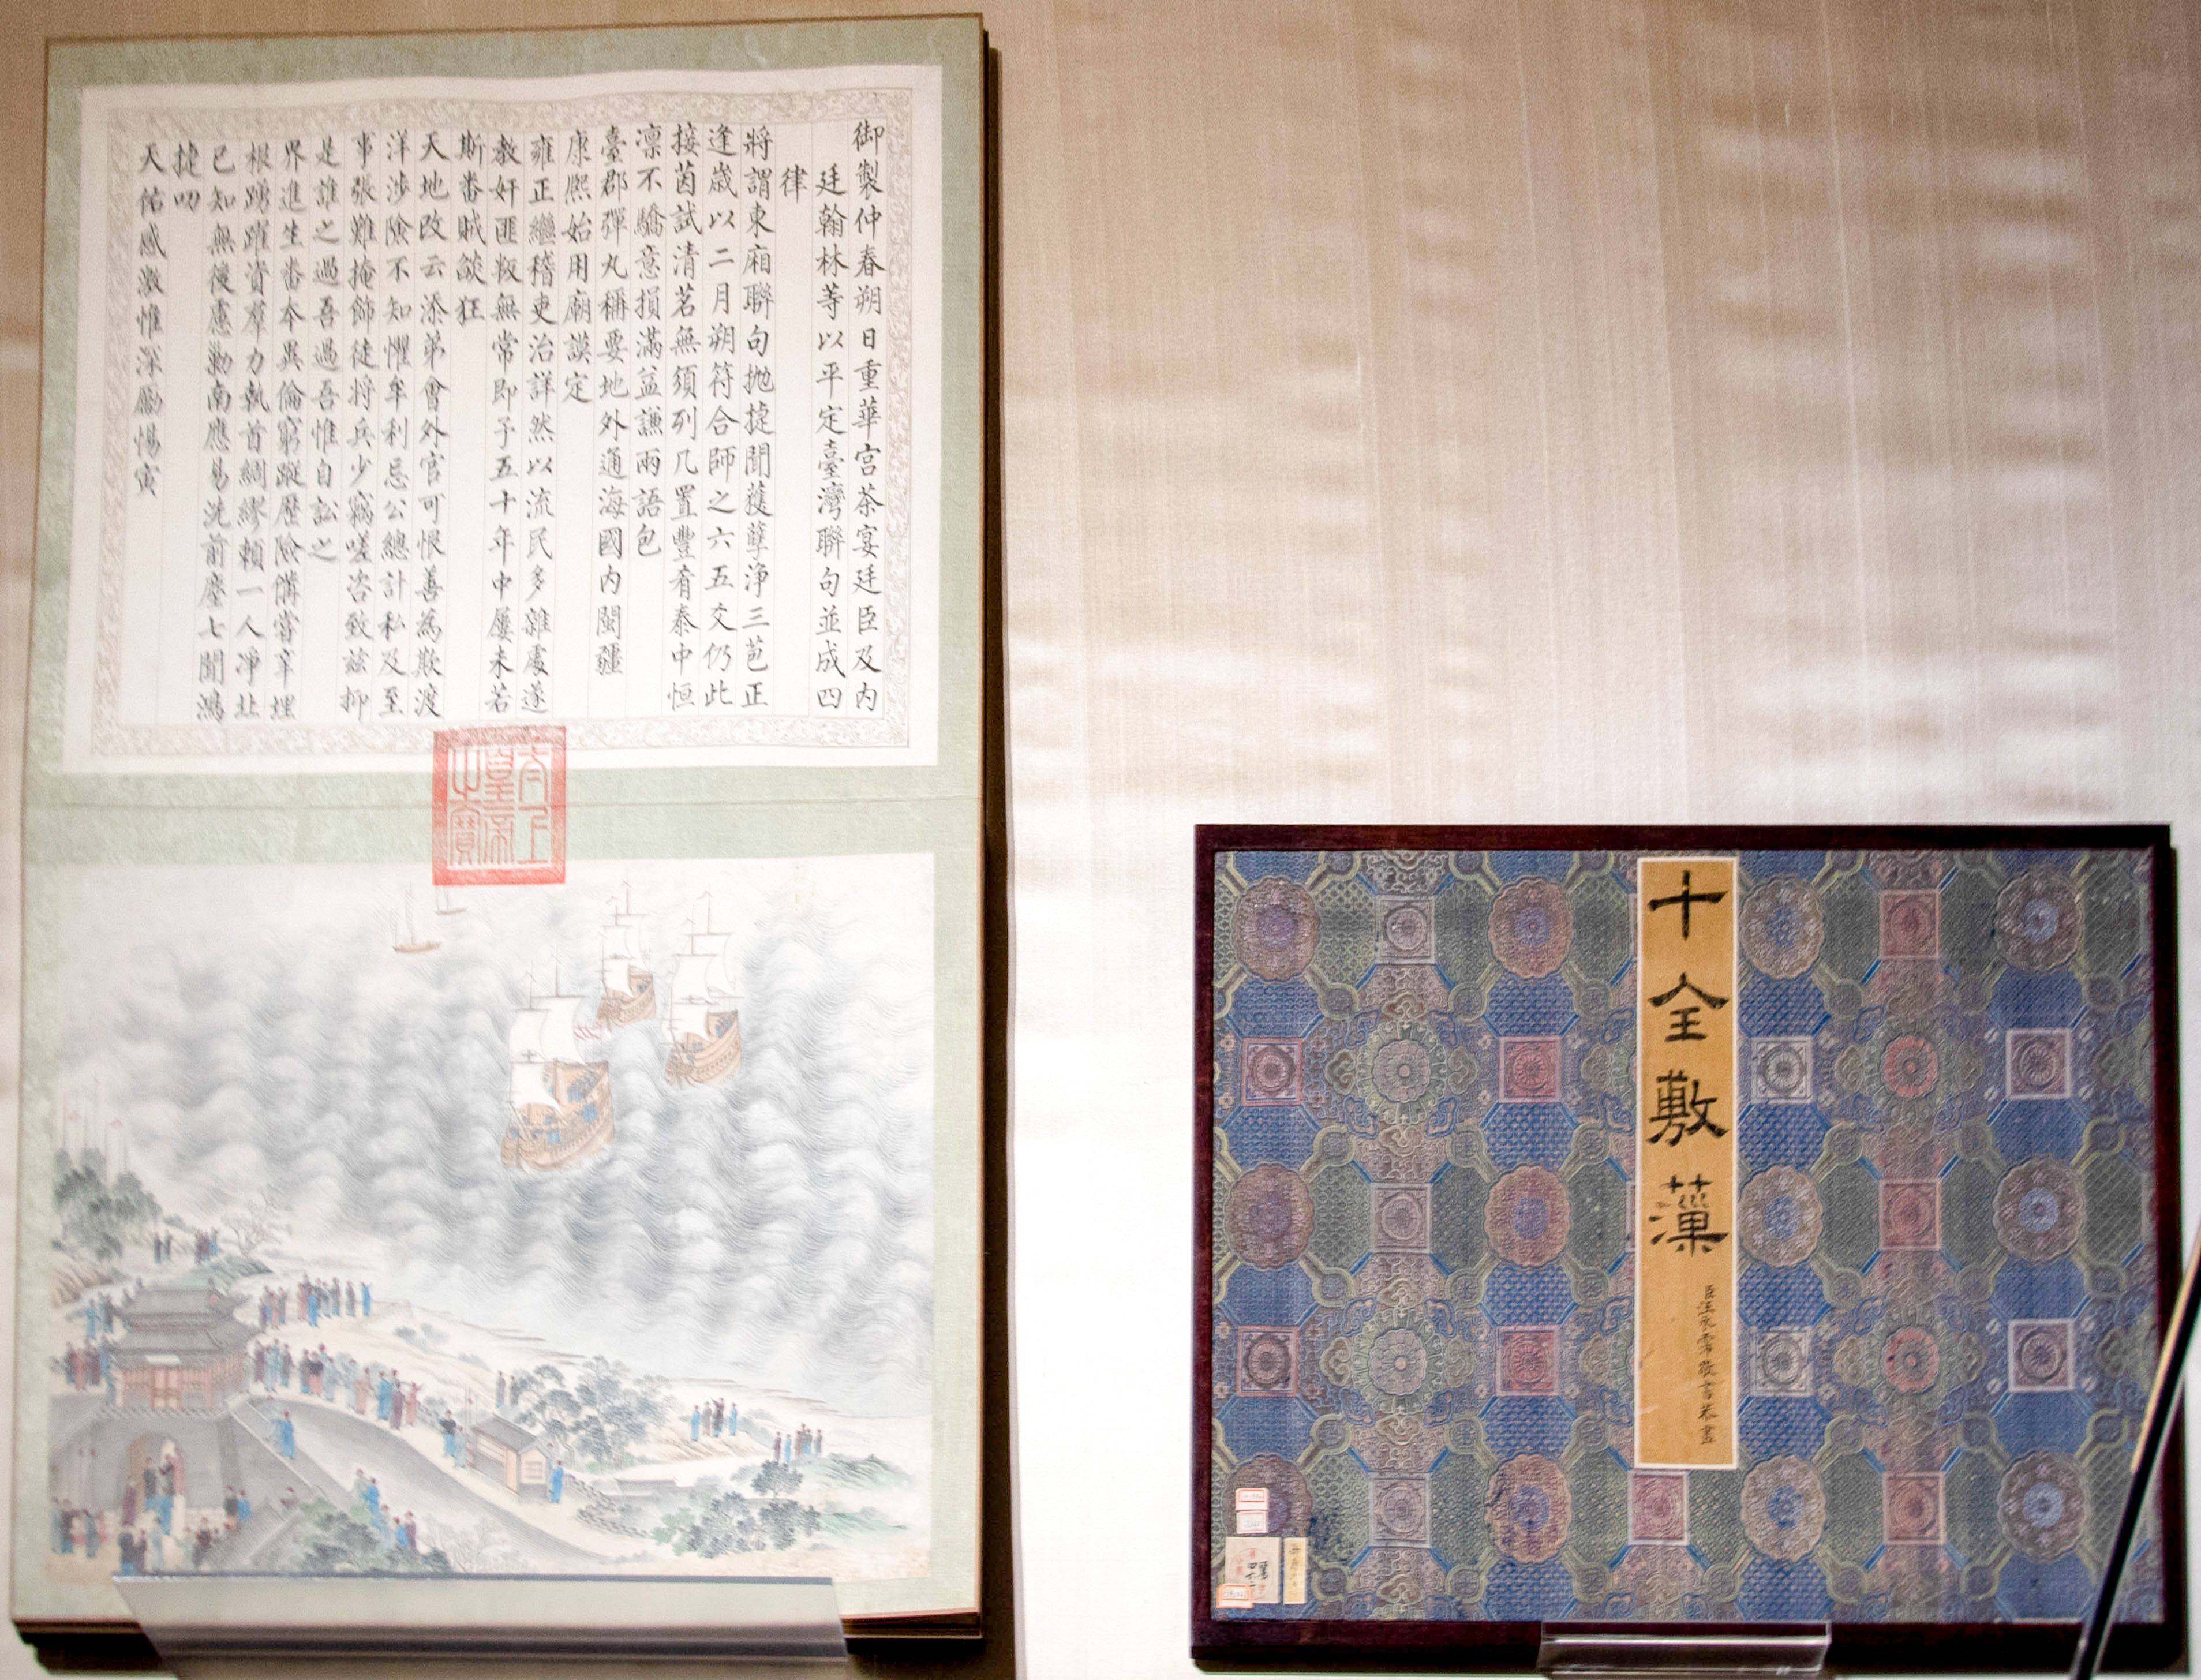 御製仲春朔日重華宮茶宴廷臣及内
廷翰林等以平定臺灣聯句並成四
律
將謂東廂聯句抛捷聞獲孽净三芭正
逢歲以二月朔符合師之六五爻仍此
接茵試清茗無須列几置豐肴泰中恒
凛不驕意損滿益謙兩語包
臺郡彈丸稱要地外通海國内閩疆
康熙始用廟謨定
雍正繼稽吏治詳然以流民多雜處遂
教奸匪叛無常即予五十年中屢未若
斯番賊燄狂
天地改云添弟會外官可恨善為欺渡
洋涉險不知懼牟利忌公總計私及至
事張難掩飾徒將兵少竊嗟咨致茲抑
是誰之過吾過吾惟自訟之
界進生番本異倫窮蹤歷險備嘗辛埋
根踴躍資羣力執首綢繆賴一人凈北
已知無後慮勦南應易洗前塵七聞鴻
捷叨
天佑感激惟深勵惕寅
太上皇帝之寶
十全敷藻
臣汪承霈敬書恭畫